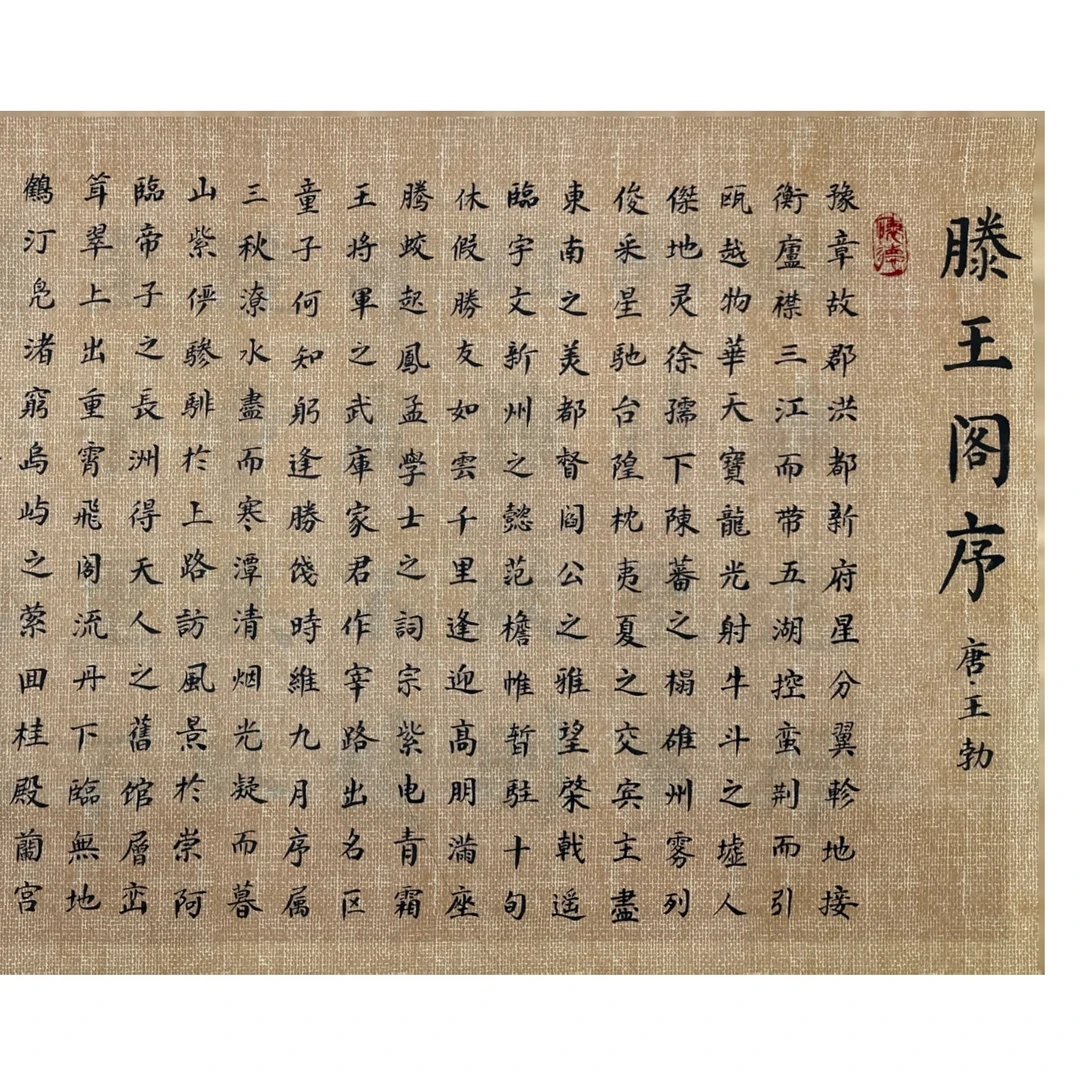 滕王阁序
唐·王勃
豫章故郡洪都新府星分翼軫地接
衡廬襟三江而带五湖控蛮荆而引
瓯越物華天寶龍光射牛斗之墟人
傑地灵徐孺下陳蕃之榻雄州雾列
俊采星馳台隍枕夷夏之交宾主盡
東南之美都督閻公之雅望棨戟遥
臨宇文新州之懿范襜帷暂駐十旬
休假勝友如雲千里逢迎高朋满座
騰蛟起鳳孟學士之詞宗紫电青霜
王将軍之武庫家君作宰路出名区
童子何知躬逢勝饯時維九月序属
三秋潦水盡而寒潭清烟光凝而暮
山紫俨驂騑於上路訪風景於崇阿
臨帝子之長洲得天人之舊馆層峦
耸翠上出重霄飛阁流丹下臨無地
鶴汀凫渚窮島屿之萦回桂殿蘭宫